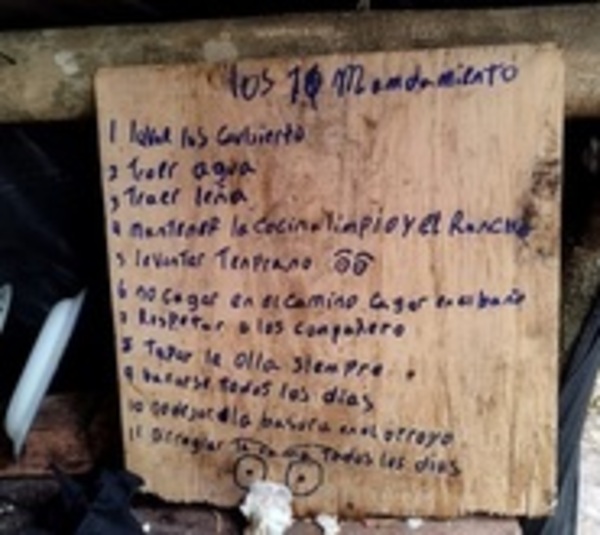 los 10 Mandamiento
1 lavar los Curbierto
2 Traer agua
3 Traer leña
4 mantener la cocina limpio y el Rancho
5 levantar Temprano
6 no cagar en el camino cagar en el baño
7 Respetar a los compañero
8 Tapar la olla siempre.
9 bañarse todos los dias
10 no dejar la basura en el arroyo
11 arreglar la cama todos los dias